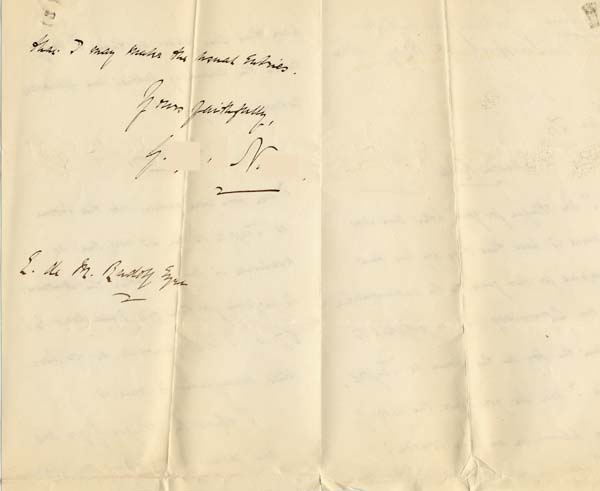 that I may make the usual entries.
Yours faithfully,
G. N.
E. de M. Rudolf Esqre